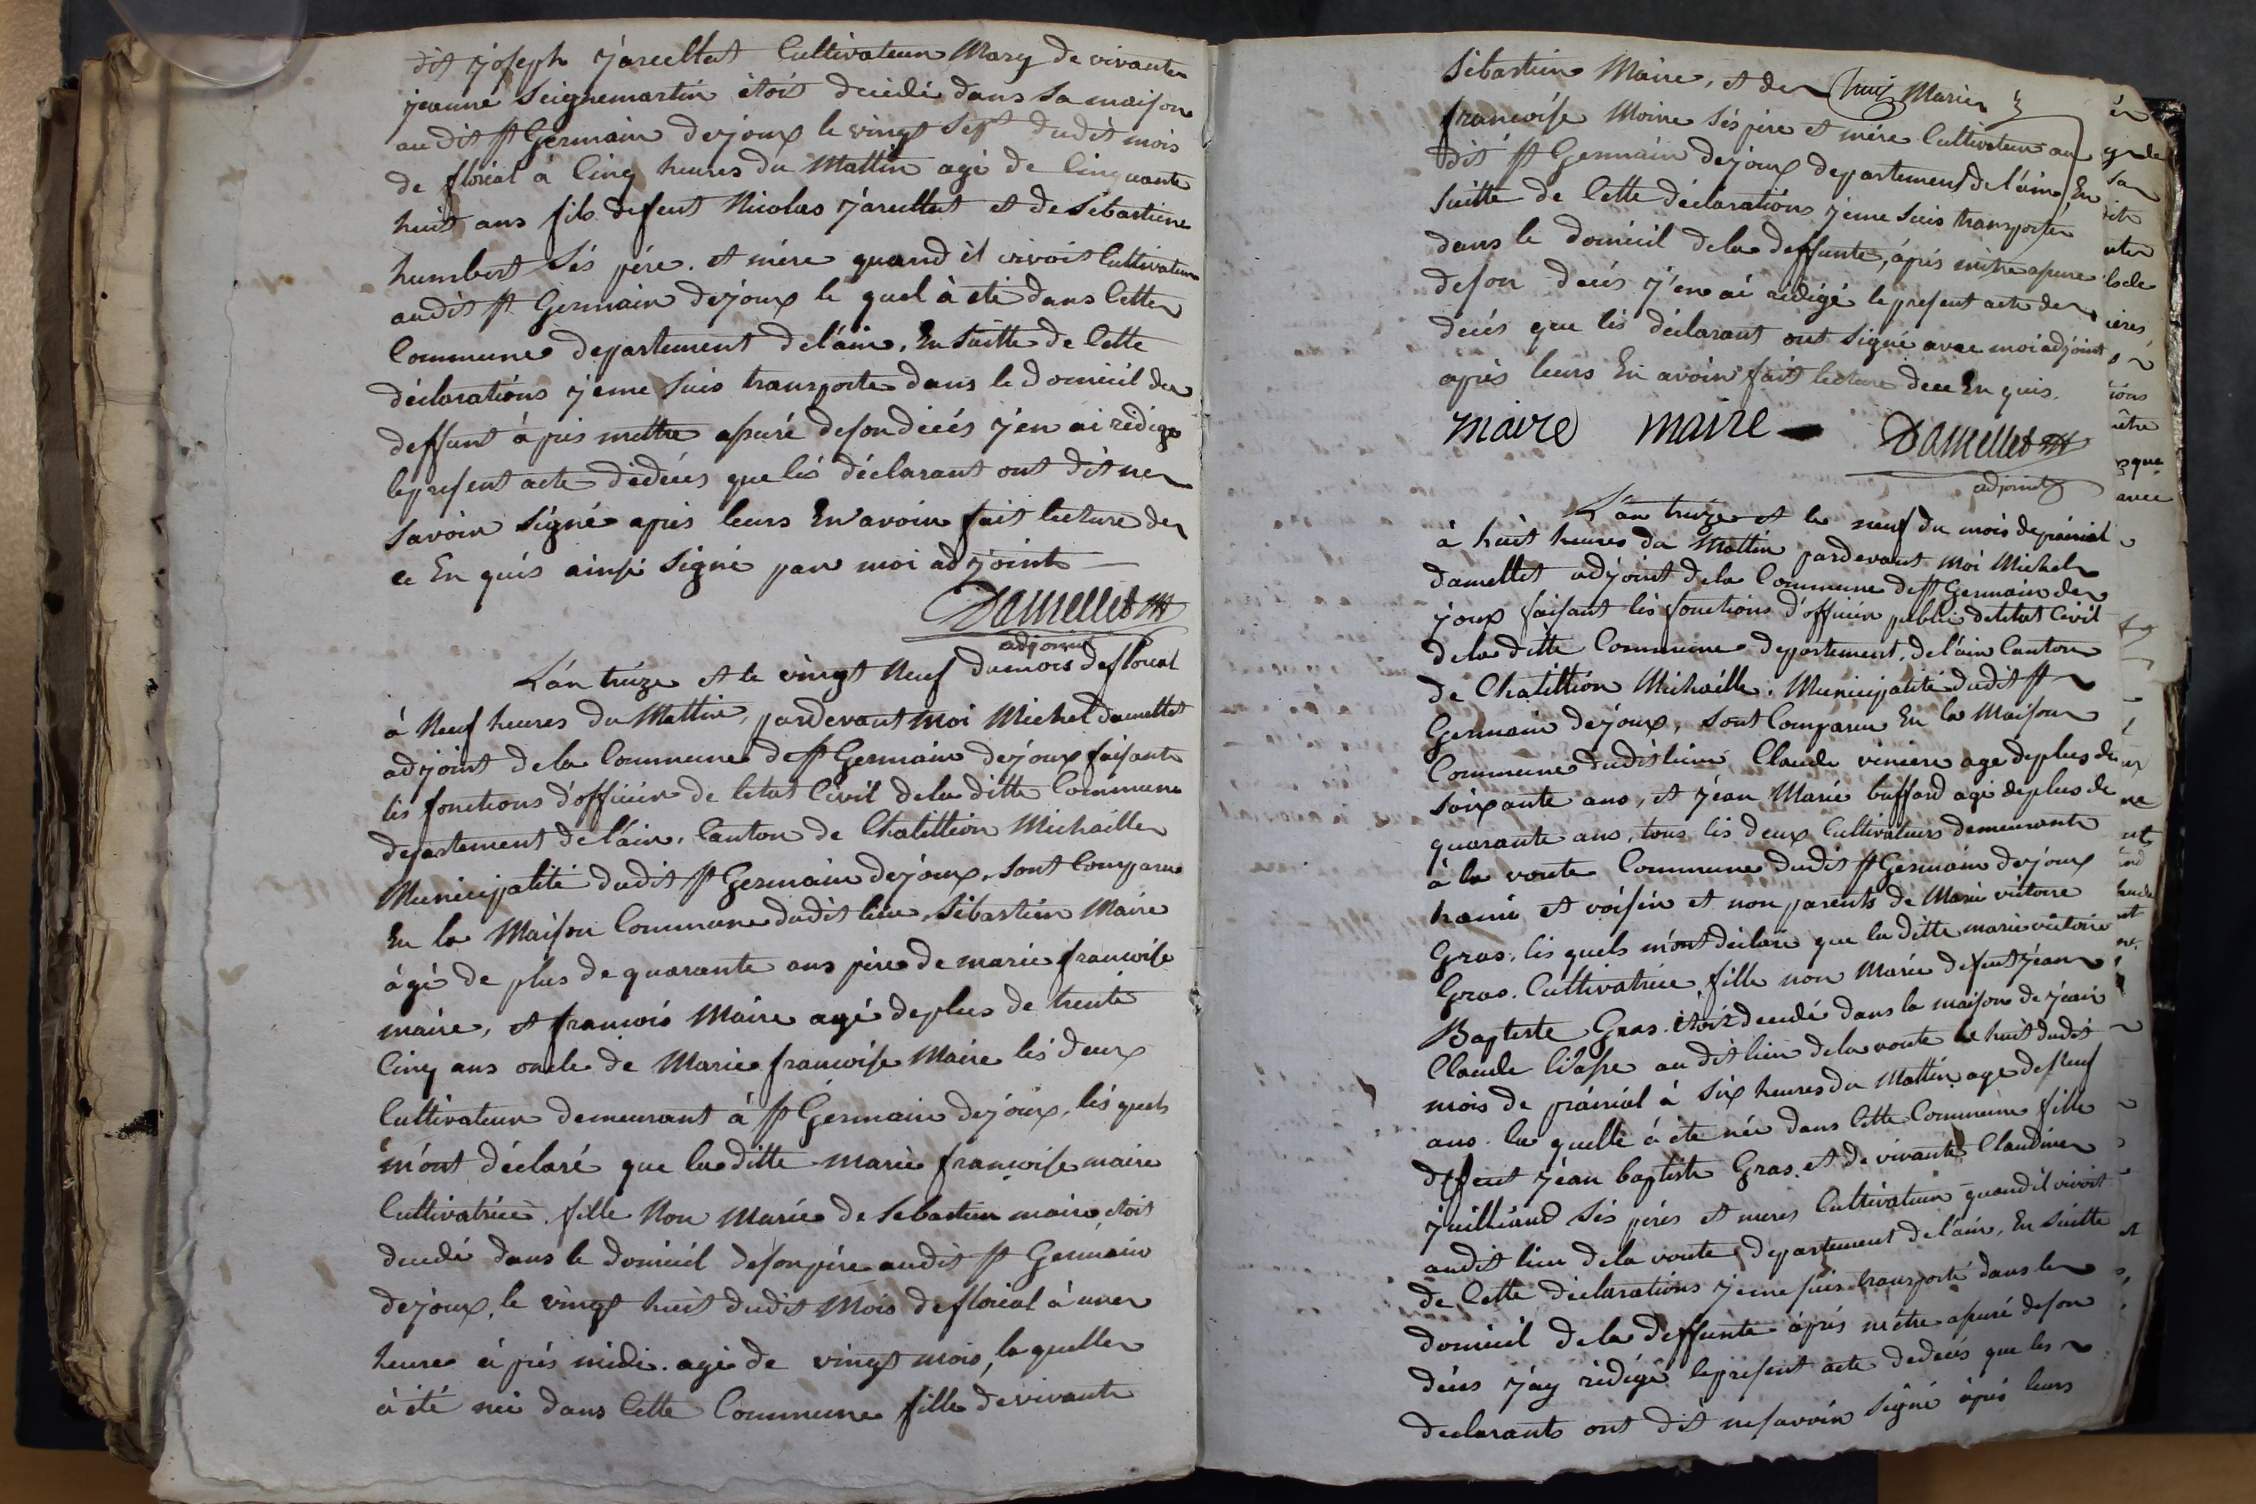 dit joseph jarcellat Cultivateur Mary de vivante
jeanne Seignemartin étoit decédé dans sa maison
audit St Germain dejoux le vingt Sept dudit mois
de floréal à Cinq heures du Mattin agé de Cinquante
huit ans fils defeut Nicolas jarcellat et de Sebastiene
humbert Sés pére. et mére quand il vivoit Cultivateur
audit St Germain dejoux le quel à eté dans Cette
Commune departement de l'ain. En Suitte de Cette
déclarations jeme Suis transporte dans le domicil du
deffunt àpris mettre assuré deson décés j'en ai rédige
lepresent acte dédécés que lés déclarant ont dit ne
Savoir Signé aprés leurs En avoir fait lecture de
ce En quis ainsi Signé par moi adjoint
Damellet
adjoint
L'an treize et le vingt Neuf dumois defloreal
à Neuf heures du Mattin, pardevant Moi Michel damellet
adjoint dela Commune de St Germain dejoux faisant
lés fonctions d'officier de letat Civil dela ditte Commune
departement de l'ain, Canton de Chatillion Michaille
Municipalité dudit St Germain dejoux, Sont Comparu
En la Maison Commune dudit lieu, Sébastien Maire
àgé de plus de quarante ans pére de marie francoise
maire, et francois Maire agé deplus de trente
Cinq ans oncle de Marie francoise Maire lés deux
Cultivateur demeurant à St Germain dejoux, lés quels
m'ont déclaré que la ditte marie francoise maire
Cultivatrice. fille Non Mariée de Sebastien maire etoit
decedé dans le domicil deson pére audit St Germain
dejoux, le vingt huit dudit Mois defloréal à une
heure àprés midi. agé de vingt mois, la quelle
à été née dans Cette Commune fille de vivante
Sébastien Maire, et de Marie
francoise Moine Sés pére et mére Cultivateur au
dit St Germain dejoux departement de l'ain, En
Suitte de Cette déclarations jeme Suis transporter
dans le domicil dela deffunte, àprés mêtre assuré
deson decés j'en ai rédigé le present acte de
decés que lés déclarant ont Signé avec moi adjoint
aprés leurs En avoir fait lecture de ce En quis.
maire maire Damellet
adjoint
L'an treize et le neuf du mois deprairial
à huit heures du Mattin pardevant Moi Michel
damellet adjoint dela Commune de St Germain de
joux faisant lés fonctions d'officier public de létat Civil
dela ditte Commune departement, de l'ain Canton
de Chatillion Michaille, Municipalité dudit St
Germain dejoux, Sont Comparu En la Maison
Commune dudit lieu, Claude agé deplus de
Soixante ans, et Jéan Marie buffard agé deplus de
quarante ans, tous lés deux Cultivateurs demeurante
à la voute Commune dudit St Germain dejoux
et voisin et non parents de Marie victoire
Gras, lés quels m'ont déclaré que la ditte marie victoire
Gras. Cultivatrice, fille non Mariée defeut jéan
Baptiste Gras. étoit decédé dans la maison de jéan
Claude audit lieu dela voute le huit dudit
mois de prairial à Six heures du Mattin age de Neuf
ans. la quelle à eté née dans Cette Commune fille
deffeut Jéan baptiste Gras. et de vivante Claudine
juilliand Sés pérés et meres Cultivateur quand il vivoit
audit lieu dela voute, departement de l'ain, En Suitte
de Cette déclarations jeme suis transporté dans le
domicil dela deffunte àprés mêtre assuré deson
décés j'ay rédigé lepresent acte dedecés que lés
declarants ont dit nesavoir Signé àprés leurs